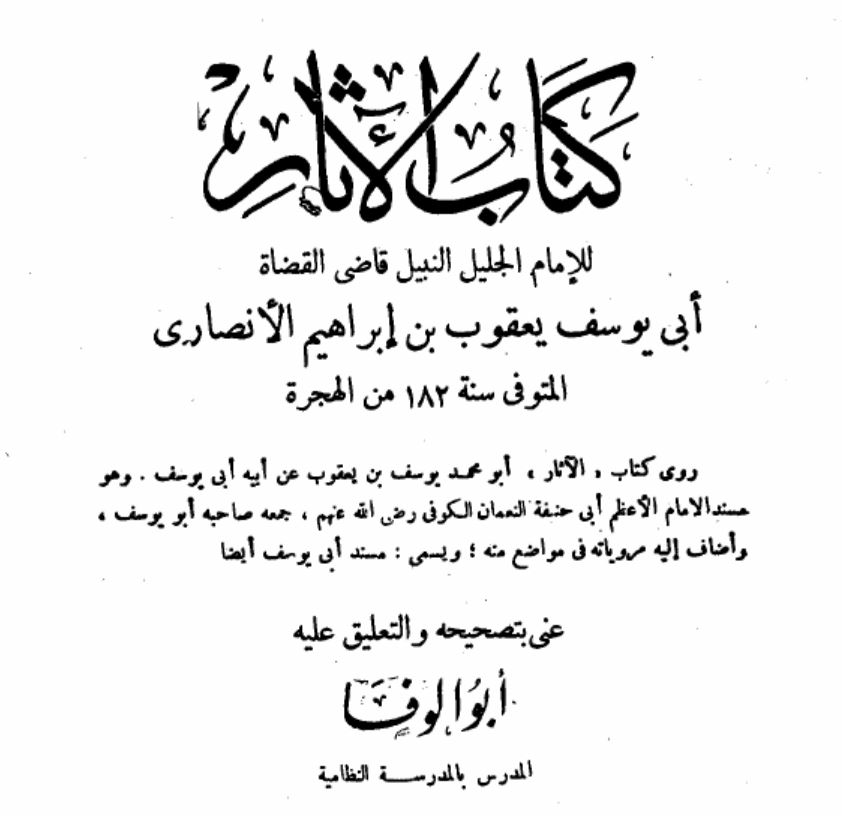 كتاب الآثار
للإمام الجليل النبيل قاضى القضاة
أبى يوسف يعقوب بن إبراهيم الأنصارى
المتوفى سنة ١٨٢ من الهجرة
روى كتاب « الآثار » أبو محمد يوسف بن يعقوب عن أبيه أبى يوسف . وهو
مسند الامام الأعظم أبى حنيفة النعمان الكوفى رضى الله عنهم ، جمعه صاحبه أبو يوسف ،
وأضاف إليه مروياته فى مواضع منه ؛ ويسمى : مسند أبى يوسف أيضا
عنى بتصحيحه والتعليق عليه
أبو الوفا
المدرس بالمدرسة النظامية